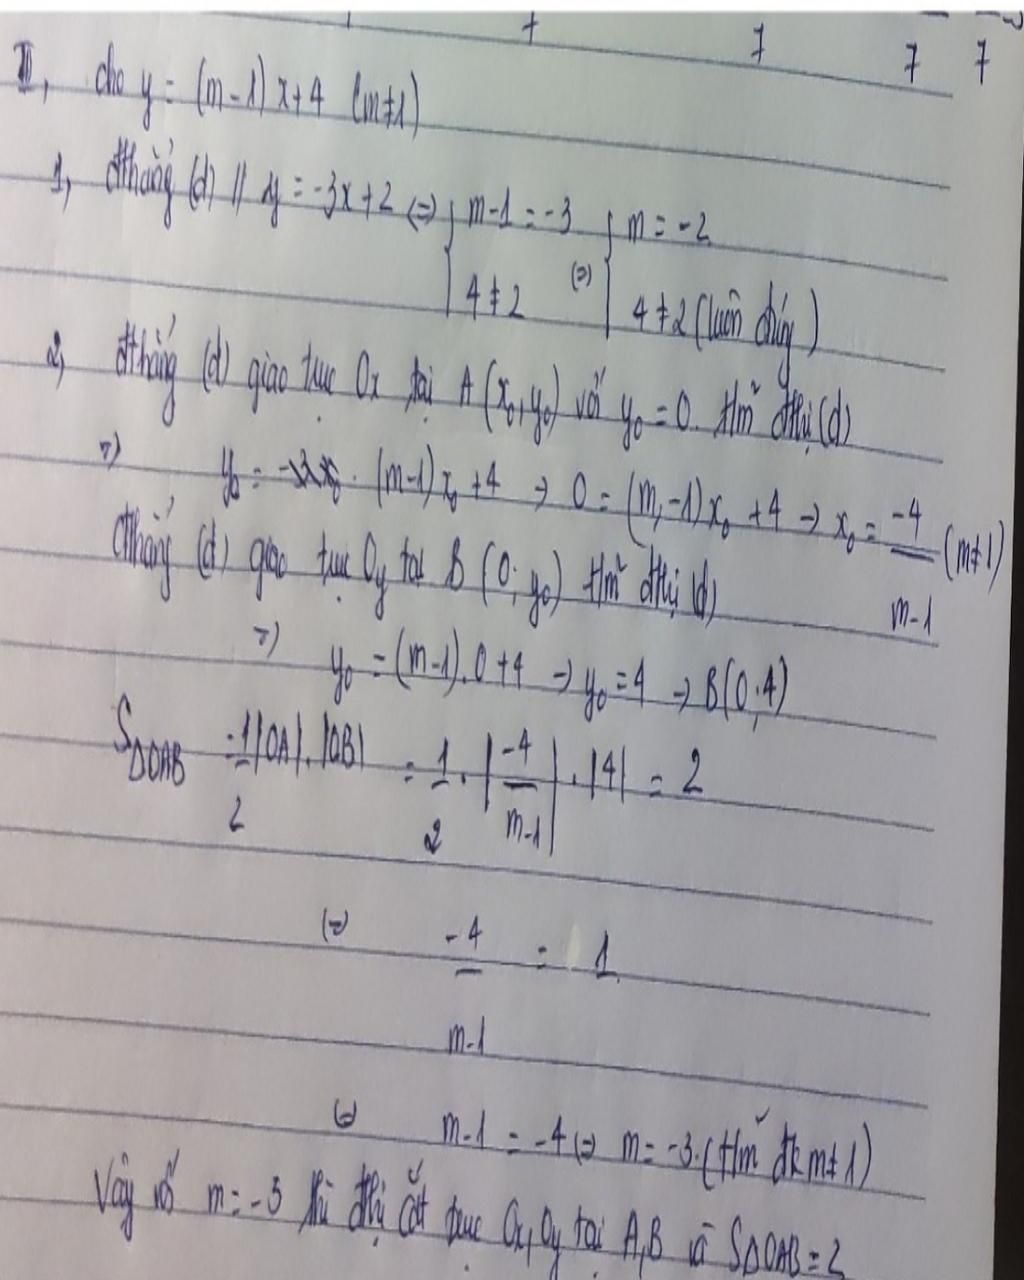 7 7 7
II, cho y = (m-1)x+4 (m≠1)
1, đthẳng (d) // y = -3x+2 (=) { m-1 = -3 (=) { m = -2
4 ≠ 2 4 ≠ 2 (luôn đúng)
2, đthẳng (d) giao trục Ox tại A (x₀, y₀) với y₀ = 0. t/m đthị (d)
=) y₀ = (m-1)x₀ +4 → 0 = (m-1)x₀ +4 → x₀ = -4/(m-1) (m≠1)
đthẳng (d) giao trục Oy tại B (0; y₀) t/m đthị (d)
=) y₀ = (m-1).0 +4 → y₀ = 4 → B(0,4)
S∆OAB = 1/2 |OA|.|OB| = 1/2 . |-4/(m-1)| . |4| = 2
(=) -4/(m-1) = 1
(=) m-1 = -4 (=) m = -3. (t/m đk m≠1)
Vậy với m = -3 thì đthị cắt trục Ox, Oy tại A,B và S∆OAB = 2